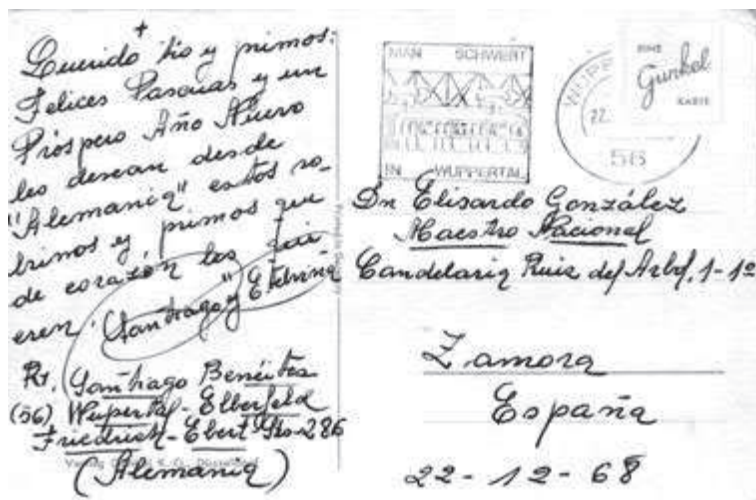 +
Querido tio y primos:
Felices Pascuas y un
Próspero Año Nuevo
les desean desde
"Alemania" estos so_
brinos y primos que
de corazón les qui
eren. "Santiago y Etelvina"
Rt. Santiago Benéitez
(56) Wupertal-Elberfeld
Friedrich-Ebert Sts-286
(Alemania)
MAN SCHWEBT
IN WUPPERTAL
WUPP
22.
56
EINE
Gunkel
KARTE
Dn Elisardo González
Maestro Nacional
Candelaria Ruiz del Arbol, 1-1º
Zamora
España
22-12-68